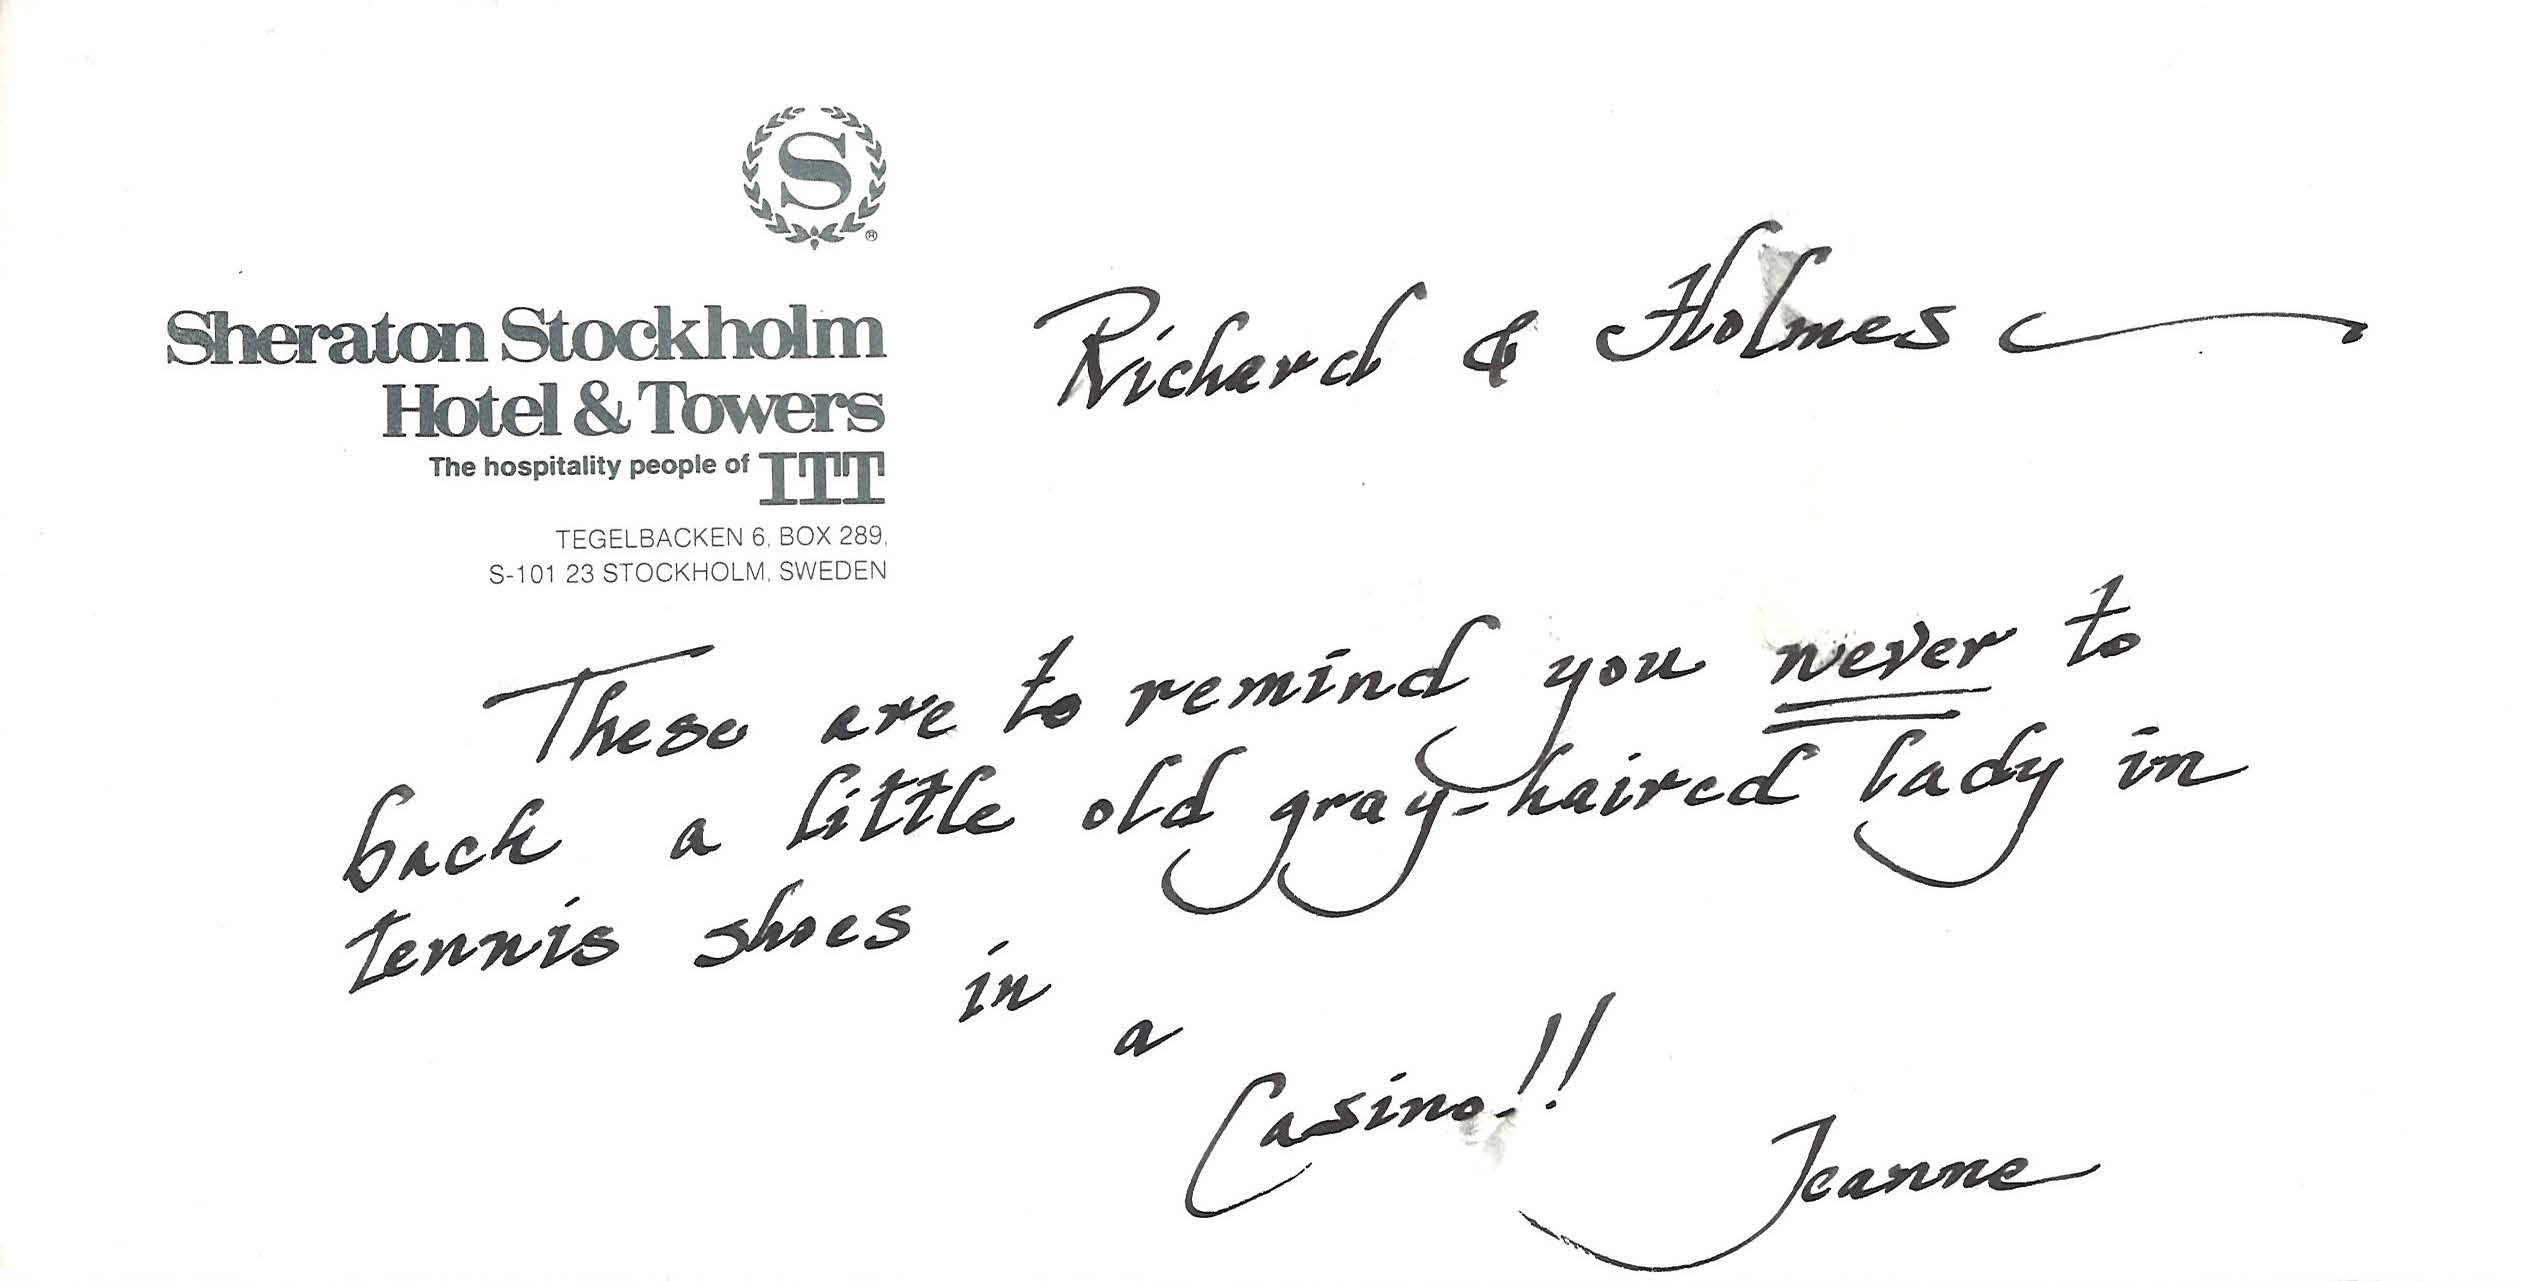 S
®
Sheraton Stockholm
Hotel & Towers
The hospitality people of ITT
TEGELBACKEN 6, BOX 289,
S-101 23 STOCKHOLM, SWEDEN
Richard & Holmes
These are to remind you never to
back a little old gray-haired lady in
tennis shoes
in
a
Casino!!
Jeanne